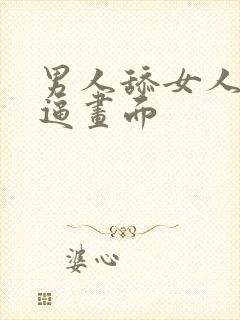 男人舔女人
逼畫而
婆心